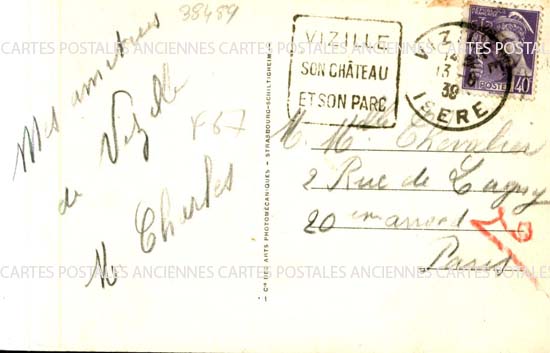 38489
Mes amitiées
de Vizille
Charles
F67
Cie DES ARTS PHOTOMÉCANIQUES - STRASBOURG-SCHILTIGHEIM
VIZILLE
SON CHÂTEAU
ET SON PARC
VIZILLE
14
13-8
39
ISERE
POSTES
40
M. Mlle Chevalier
2 Rue de Lagny
20 em arrond
Paris
CARTES POSTALES ANCIENNES CARTES POSTALES ANCIENNES CARTES POSTALES ANCIENNES
CARTES POSTALES ANCIENNES CARTES POSTALES ANCIENNES CARTES POSTALES ANCIENNES